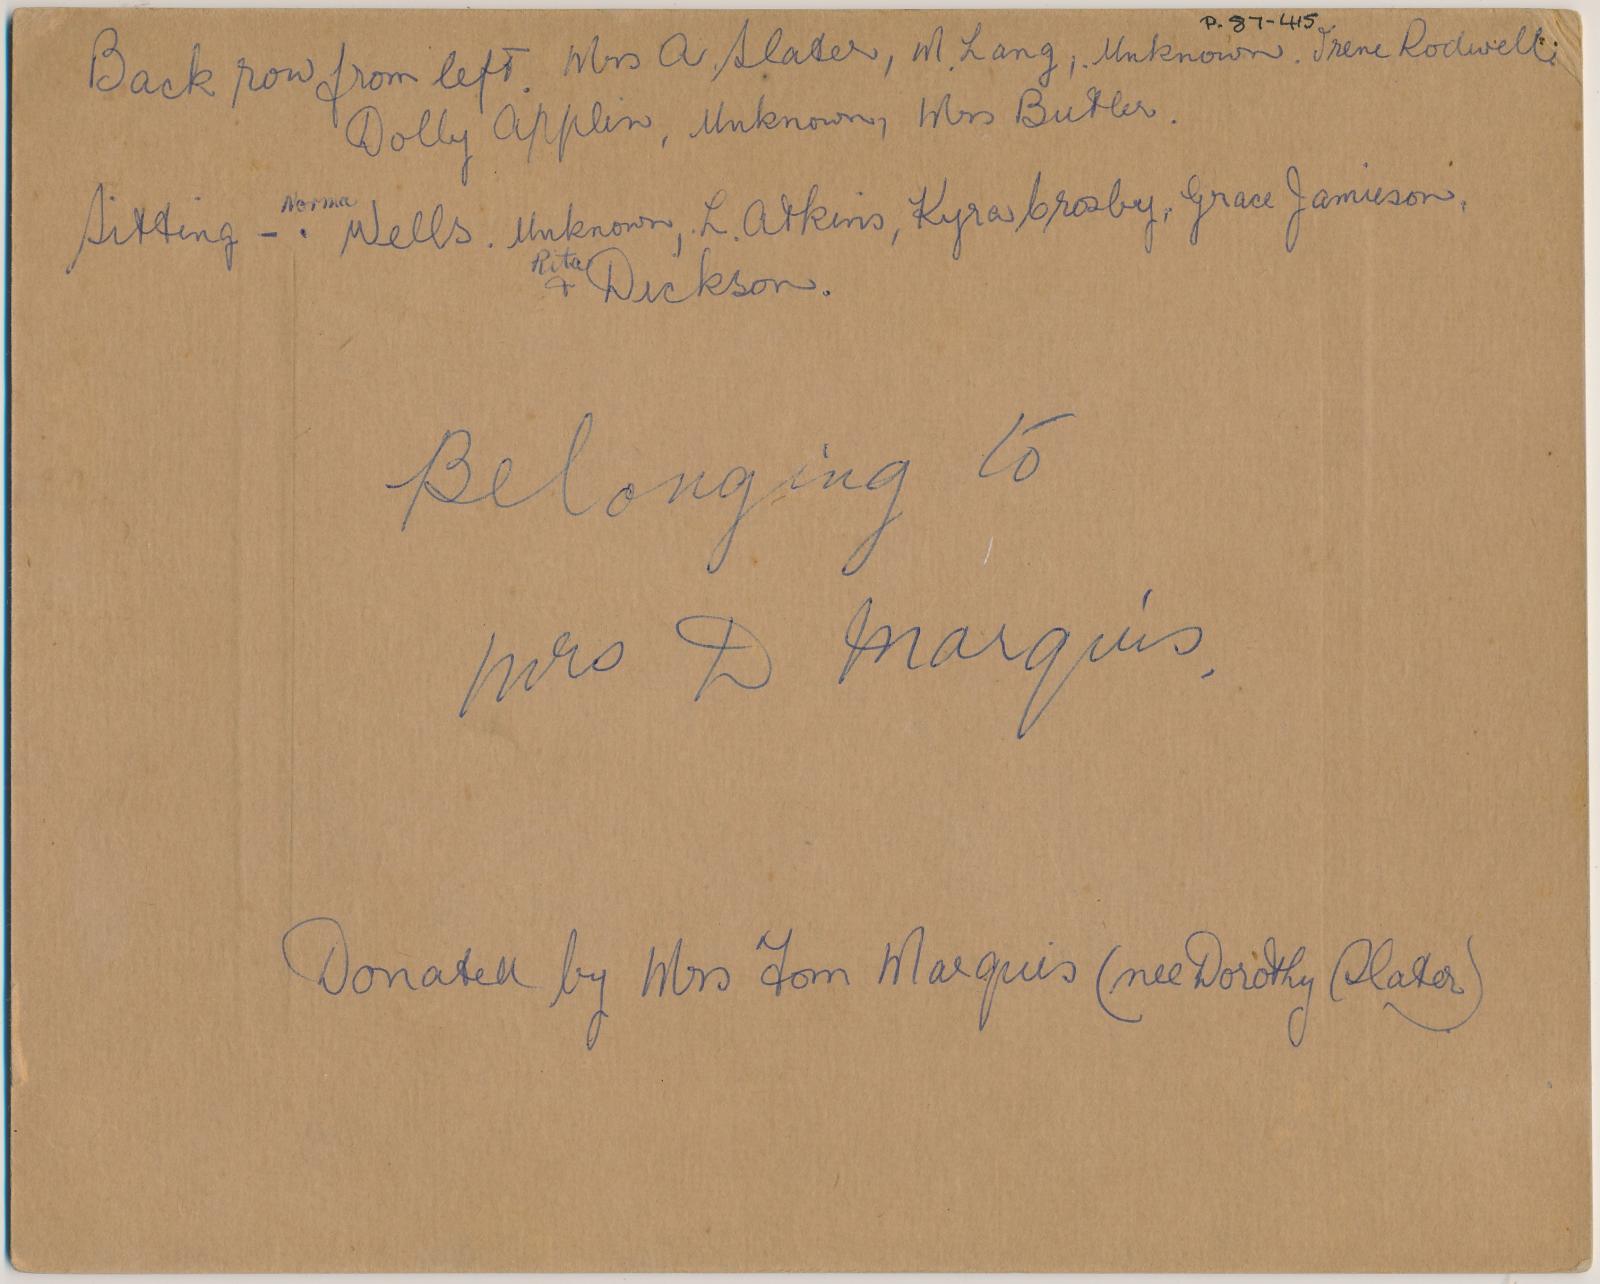 P. 87-415
Back row from left. Mrs A. Slater, M. Lang, Unknown. Irene Rodwell;
Dolly Applin, Unknown, Mrs Butler.
Sitting - Norma Wells. Unknown, L. Atkins, Kyra Crosby, Grace Jamieson,
& Rita Dickson.
Belonging to
Mrs D Marquis.
Donated by Mrs Tom Marquis (nee Dorothy Slater)